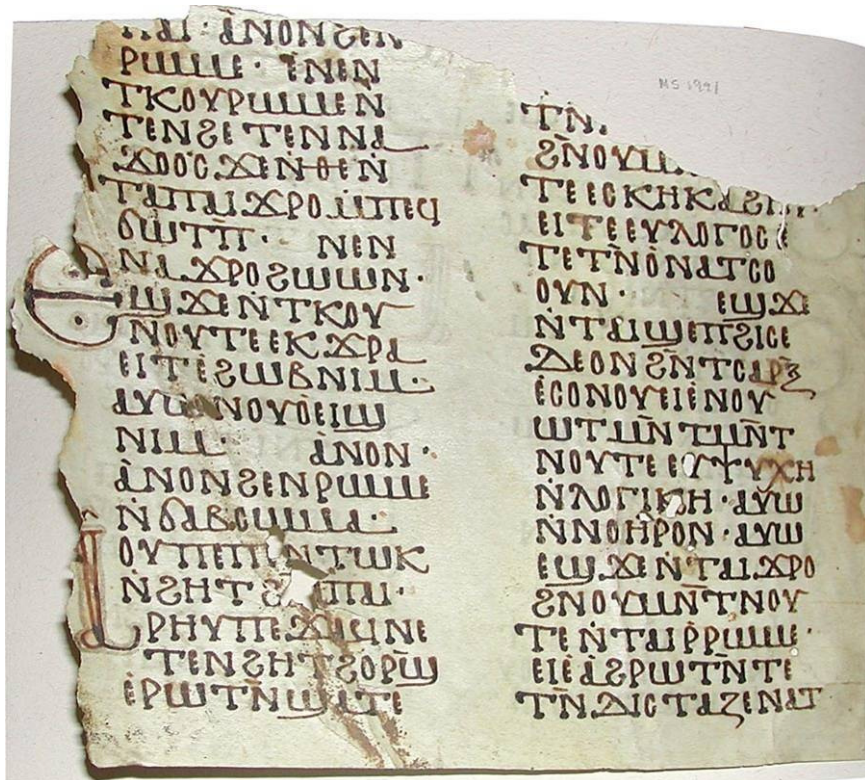 MS 1991
ⲡⲁⲓ· ⲁⲛⲟⲛϩⲉⲛ
ⲣⲱⲙⲉ· ⲉ̇ⲛⲉⲛ
ⲧⲕⲟⲩⲣⲱⲙⲉⲛ
ⲧⲉⲛϩⲉⲧⲉⲛⲛⲁ
ϫⲟⲟⲥϫⲉⲛ̇ⲑⲉⲛ̇
ⲧⲁⲡⲁⲓϫⲣⲟⲙ̇ⲡⲉϥ
ϭⲱⲧⲡ̅· ⲛⲉⲛ
ⲛⲁϫⲣⲟϩⲱⲱⲛ·
ⲉϣϫⲉⲛ̇ⲧⲕⲟⲩ
ⲛⲟⲩⲧⲉⲉⲕϫⲣⲁ
ⲉⲓⲧⲉϩⲱⲃⲛⲓⲙ·
ⲁⲩⲱⲛⲟⲩⲟⲉⲓϣ
ⲛⲓⲙ· ⲁ̇ⲛⲟⲛ·
ⲁ̇ⲛⲟⲛϩⲉⲛⲣⲱⲙⲉ
ⲛ̇ϭⲁⲃⲥⲱⲙⲁ·
ⲟⲩⲡⲉⲡⲉⲛⲧⲱⲕ
ⲛ̇ϩⲏⲧϩⲙⲡⲁⲓ·
ⲁⲣⲏⲩⲡⲉϫⲁϥⲛⲉ
ⲧⲉⲛϩⲏⲧϩⲟⲣϣ̅
ⲉ̇ⲣⲱⲧⲛ̅ϣⲁⲧⲉ
ⲧⲛ̅
ϩⲛ̅ⲟⲩ
ⲧⲉⲉⲥⲕⲏⲕⲁϩⲏ
ⲉⲓⲧⲉⲉⲩⲗⲟⲅⲟⲥⲉ
ⲧⲉⲧⲛ̅ⲟ̇ⲛⲁⲧⲥⲟ
ⲟⲩⲛ· ⲉϣϫⲉ
ⲛ̇ⲧⲁⲓϣⲉⲡϩⲓⲥⲉ
ⲇⲉⲟⲛϩⲛ̅ⲧⲥⲁⲣⲝ̅
ⲉ̇ⲥⲟⲛⲟⲩⲉⲓⲉ̇ⲛⲟⲩ
ⲱⲧⲙⲛ̅ⲧⲙⲛ̅ⲧ
ⲛⲟⲩⲧⲉⲉⲩⲯⲩⲭⲏ
ⲛ̇ⲗⲟⲅⲓⲕⲏ·ⲁⲩⲱ
ⲛ̇ⲛⲟⲏⲣⲟⲛ·ⲁⲩⲱ
ⲉϣϫⲉⲛ̇ⲧⲁⲓϫⲣⲟ
ϩⲛⲟⲩⲙⲛ̅ⲧⲛⲟⲩ
ⲧⲉⲛ̇ⲧⲁⲓⲣ̇ⲣⲱⲙⲉ·
ⲉⲓⲉⲁ̇ϩⲣⲱⲧⲛ̅ⲧⲉ
ⲧⲛ̅ⲇⲓⲥⲧⲁⲍⲉⲛⲁⲧ